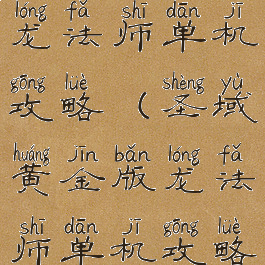 lóng fǎ shī dān jī
龙法师单机
gōng lüè shèng yù
攻略(圣域
huáng jīn bǎn lóng fǎ
黄金版龙法
shī dān jī gōng lüè
师单机攻略